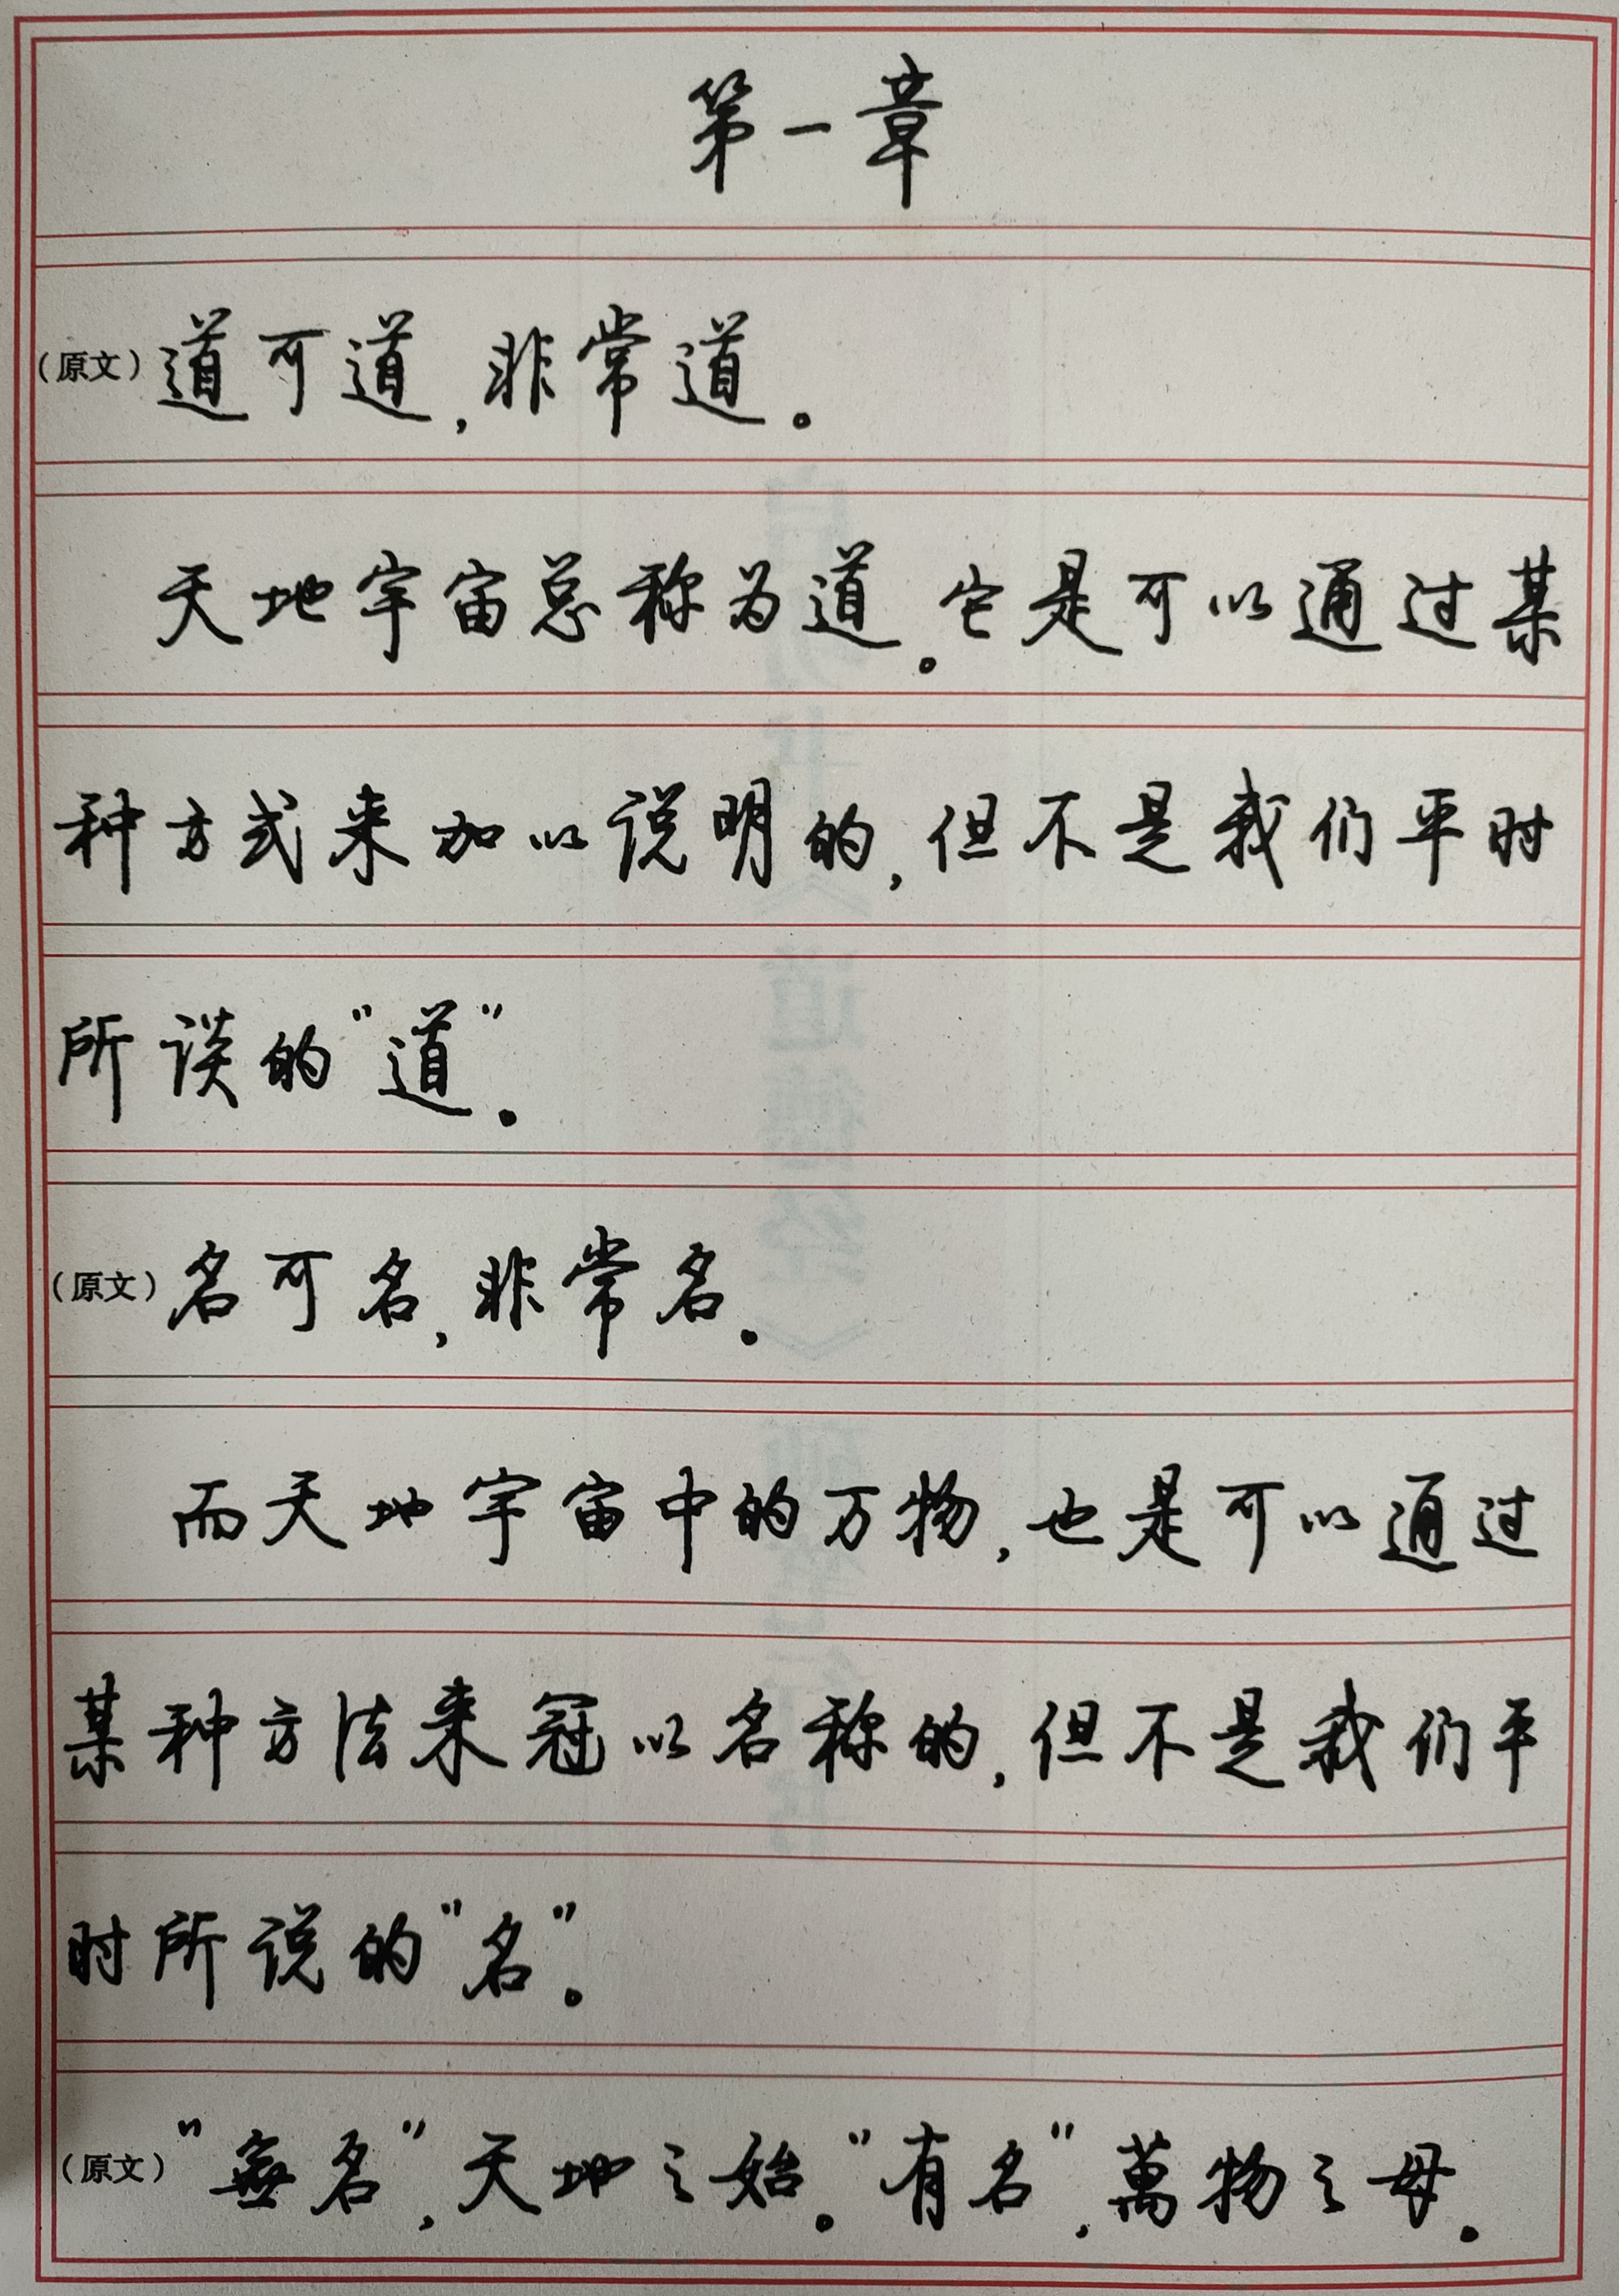 第一章
（原文）道可道，非常道。
天地宇宙总称为道。它是可以通过某
种方式来加以说明的，但不是我们平时
所谈的“道”。
（原文）名可名，非常名。
而天地宇宙中的万物，也是可以通过
某种方法来冠以名称的，但不是我们平
时所说的“名”。
（原文）“無名”，天地之始。“有名”，萬物之母。